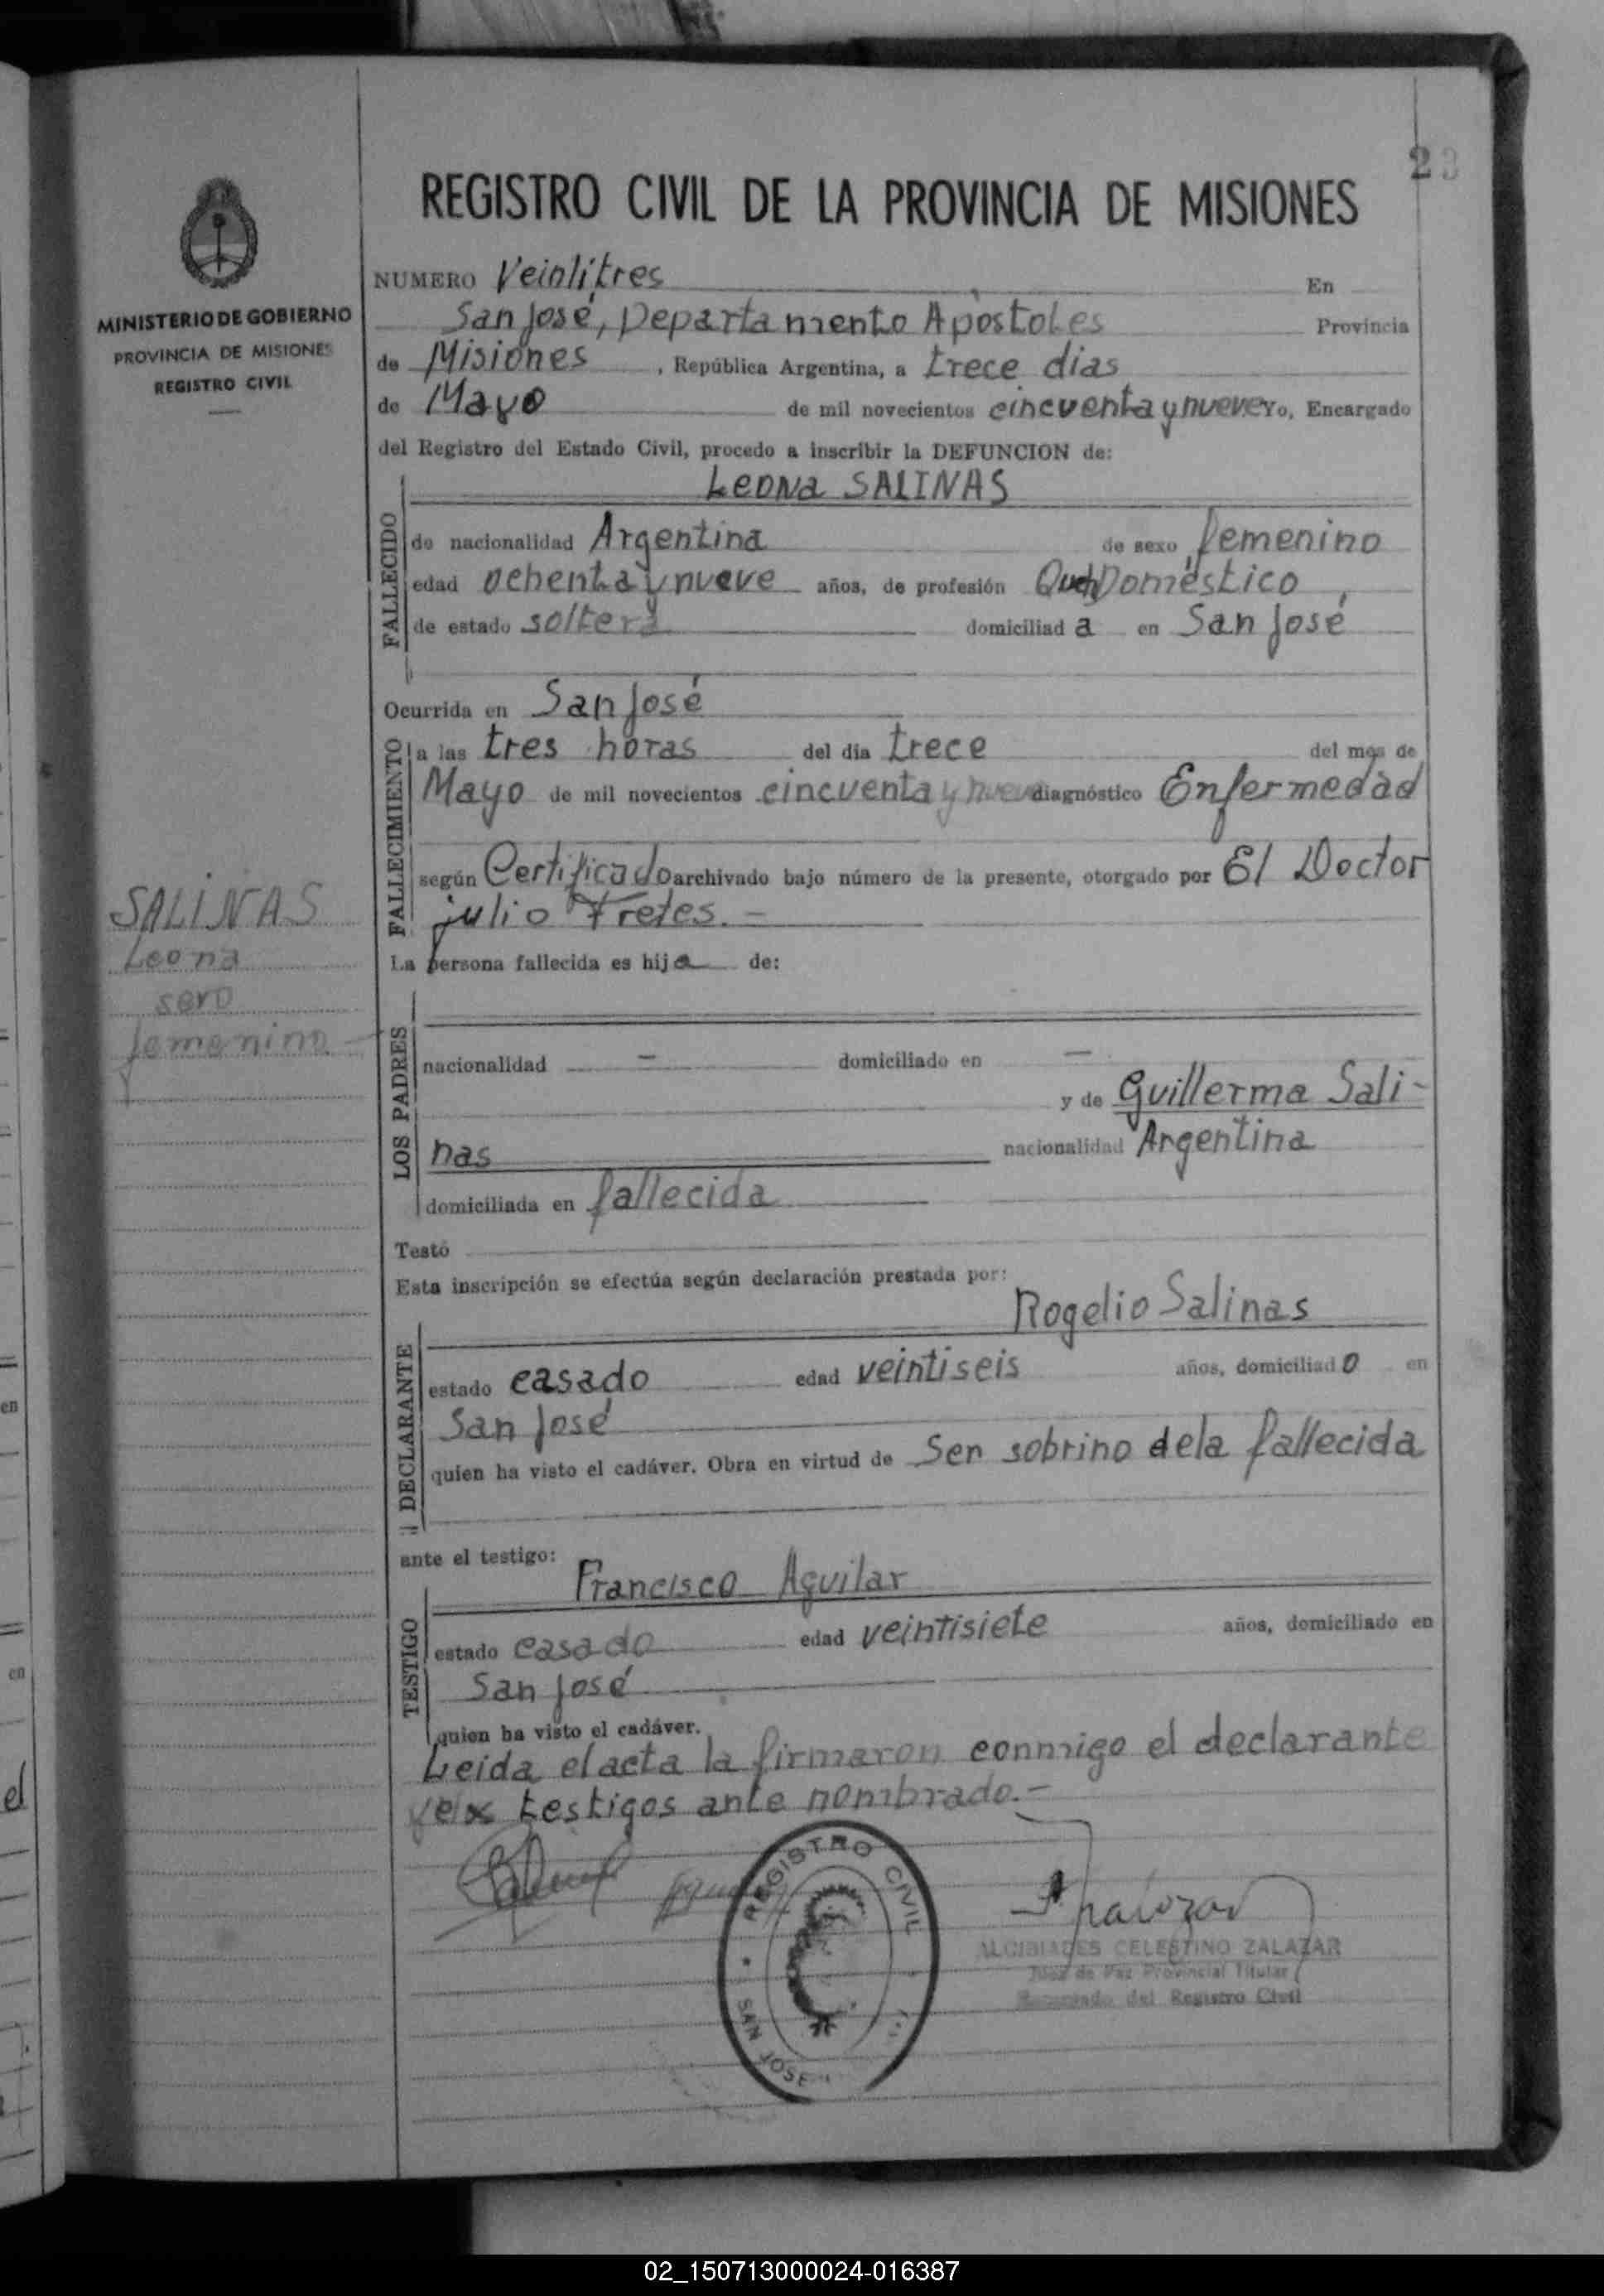 23
REGISTRO CIVIL DE LA PROVINCIA DE MISIONES
MINISTERIO DE GOBIERNO
PROVINCIA DE MISIONES
REGISTRO CIVIL
NUMERO Veintitres En
San José, Departamento Apóstoles Provincia
de Misiones, República Argentina, a trece dias
de Mayo de mil novecientos cincuenta y nueve Yo, Encargado
del Registro del Estado Civil, procedo a inscribir la DEFUNCION de:
Leona SALINAS
FALLECIDO
de nacionalidad Argentina de sexo femenino
edad ochenta y nueve años, de profesión Queh Doméstico
de estado soltera domiciliad a en San José
Ocurrida en San José
FALLECIMIENTO
a las tres horas del dia trece del mes de
Mayo de mil novecientos cincuenta y nueve diagnóstico Enfermedad
según Certificado archivado bajo número de la presente, otorgado por El Doctor
julio Fretes.-
SALINAS
Leona
sexo
femenino
La persona fallecida es hija de:
LOS PADRES
nacionalidad — domiciliado en —
y de Guillerma Sali-
nas nacionalidad Argentina
domiciliada en fallecida
Testó
Esta inscripción se efectúa según declaración prestada por:
Rogelio Salinas
DECLARANTE
estado casado edad veintiseis años, domiciliad o en
San José
quien ha visto el cadáver. Obra en virtud de Ser sobrino de la fallecida
ante el testigo:
Francisco Aguilar
TESTIGO
estado casado edad veintisiete años, domiciliado en
San José
quien ha visto el cadáver.
Leida el acta la firmaron conmigo el declarante
y el testigos ante nombrado.-
REGISTRO CIVIL
SAN JOSE
ALCIBIADES CELESTINO ZALAZAR
Juez de Paz Provincial Titular
Encargado del Registro Civil
02_150713000024-016387